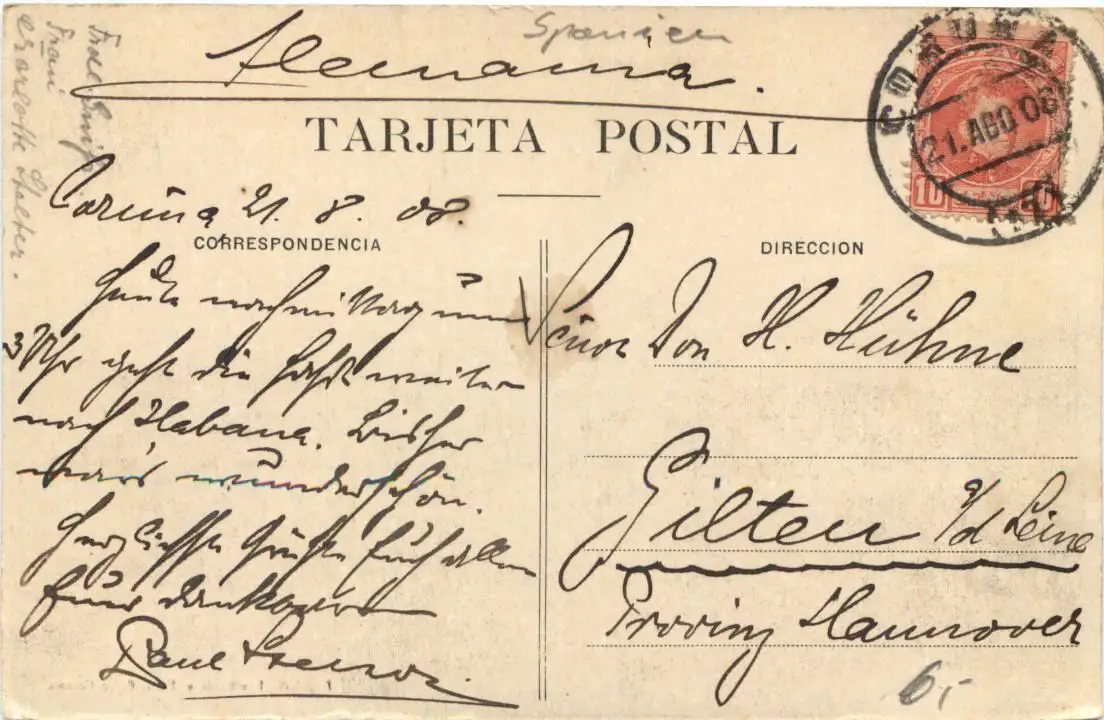 Spanien
Alemania.
CORUÑA
21.AGO 08
10
TARJETA POSTAL
Coruña 21. 8. 08.
CORRESPONDENCIA
DIRECCION
Heute nachmittag um
3 Uhr geht die Fahrt weiter
nach Habana. Bisher
war's wunderschön.
Herzlichste Grüße Euch allen
Euer dankbarer
Paul
Señor Don H. Hühne
Gilten a/d Leine
Provinz Hannover
6,-
Frau
Charlotte